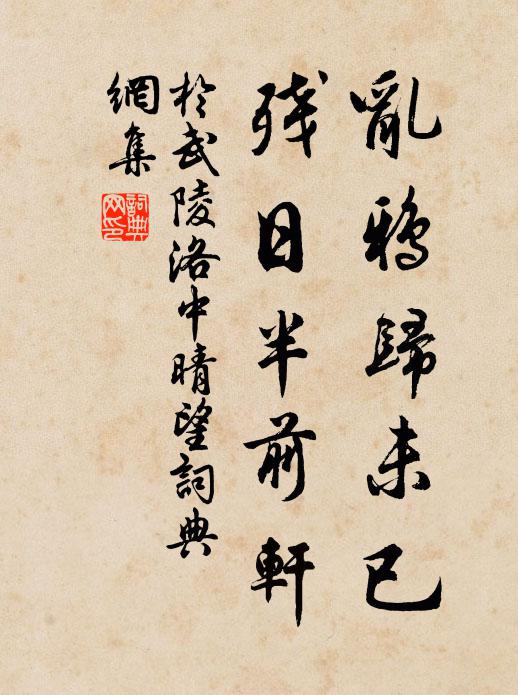 亂鴉歸未已
殘日半前軒
於武陵洛中晴望詞典
網集
詞典
网印